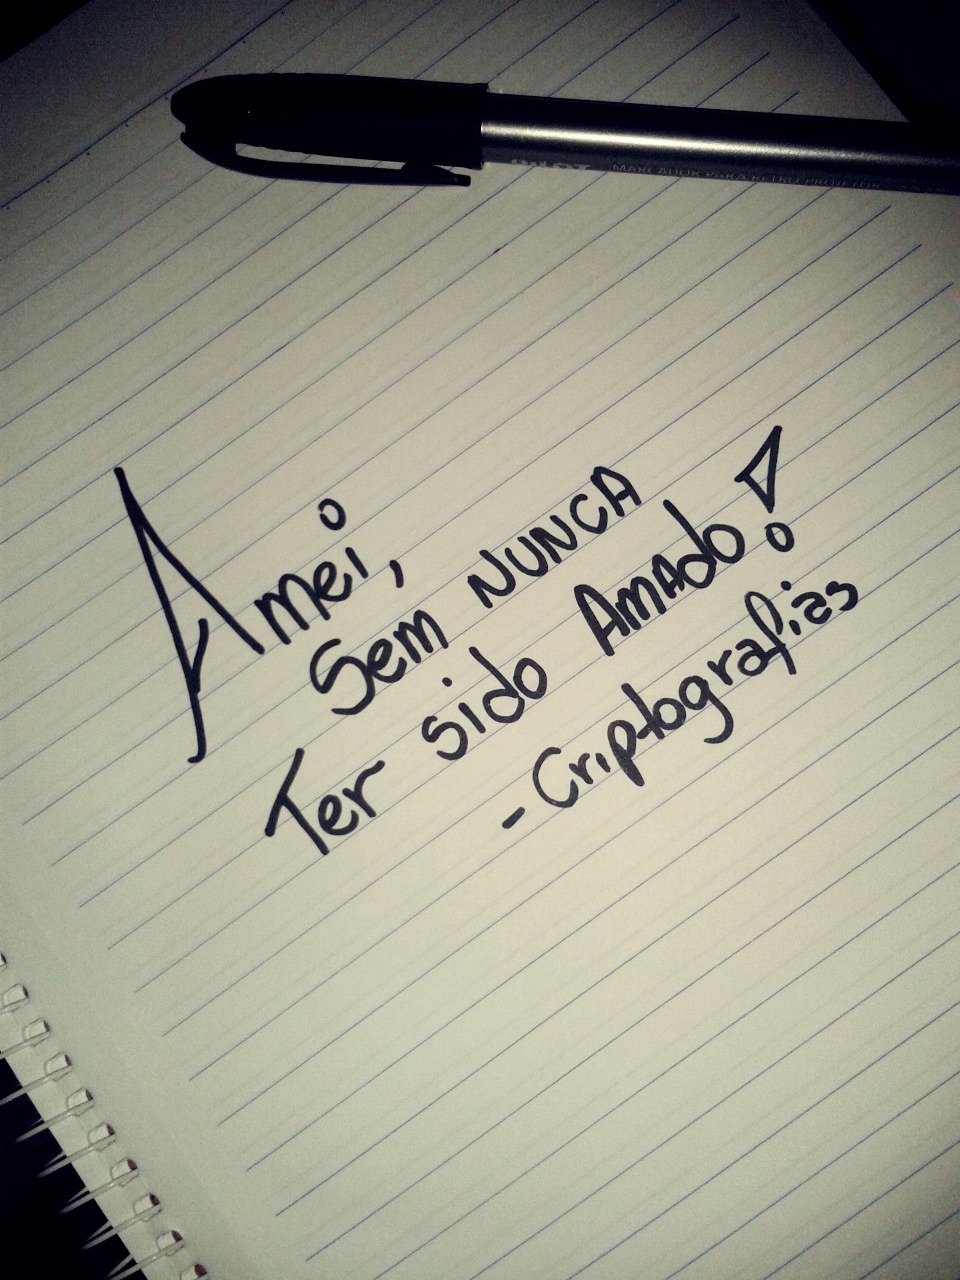 PILOT MARCADOR PARA RETRO PROJETOR
Amei,
Sem NUNCA
Ter sido AMAdo!
- Criptografias